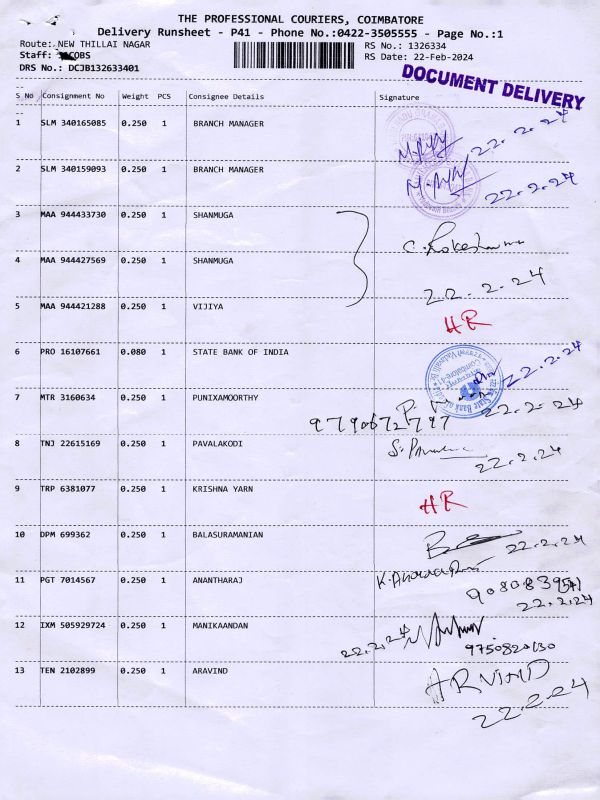 THE PROFESSIONAL COURIERS, COIMBATORE
Delivery Runsheet - P41 - Phone No.:0422-3505555 - Page No.:1
Route: NEW THILLAI NAGAR RS No.: 1326334
Staff: RS Date: 22-Feb-2024
DRS No.: DCJB132633401
DOCUMENT DELIVERY
S No Consignment No Weight PCS Consignee Details Signature
1 SLM 340165085 0.250 1 BRANCH MANAGER 22.2.24
2 SLM 340159093 0.250 1 BRANCH MANAGER 22.2.24
3 MAA 944433730 0.250 1 SHANMUGA
4 MAA 944427569 0.250 1 SHANMUGA 22.2.24
5 MAA 944421288 0.250 1 VIJIYA HR
6 PRO 16107661 0.080 1 STATE BANK OF INDIA 22.2.24
7 MTR 3160634 0.250 1 PUNIXAMOORTHY 22.2.24
9790672797
8 TNJ 22615169 0.250 1 PAVALAKODI 22.2.24
9 TRP 6381077 0.250 1 KRISHNA YARN HR
10 DPM 699362 0.250 1 BALASURAMANIAN 22.2.24
11 PGT 7014567 0.250 1 ANANTHARAJ
22.2.24
12 IXM 505929724 0.250 1 MANIKAANDAN 22.2.24
9750820130
13 TEN 2102899 0.250 1 ARAVIND ARVIND
22.2.24